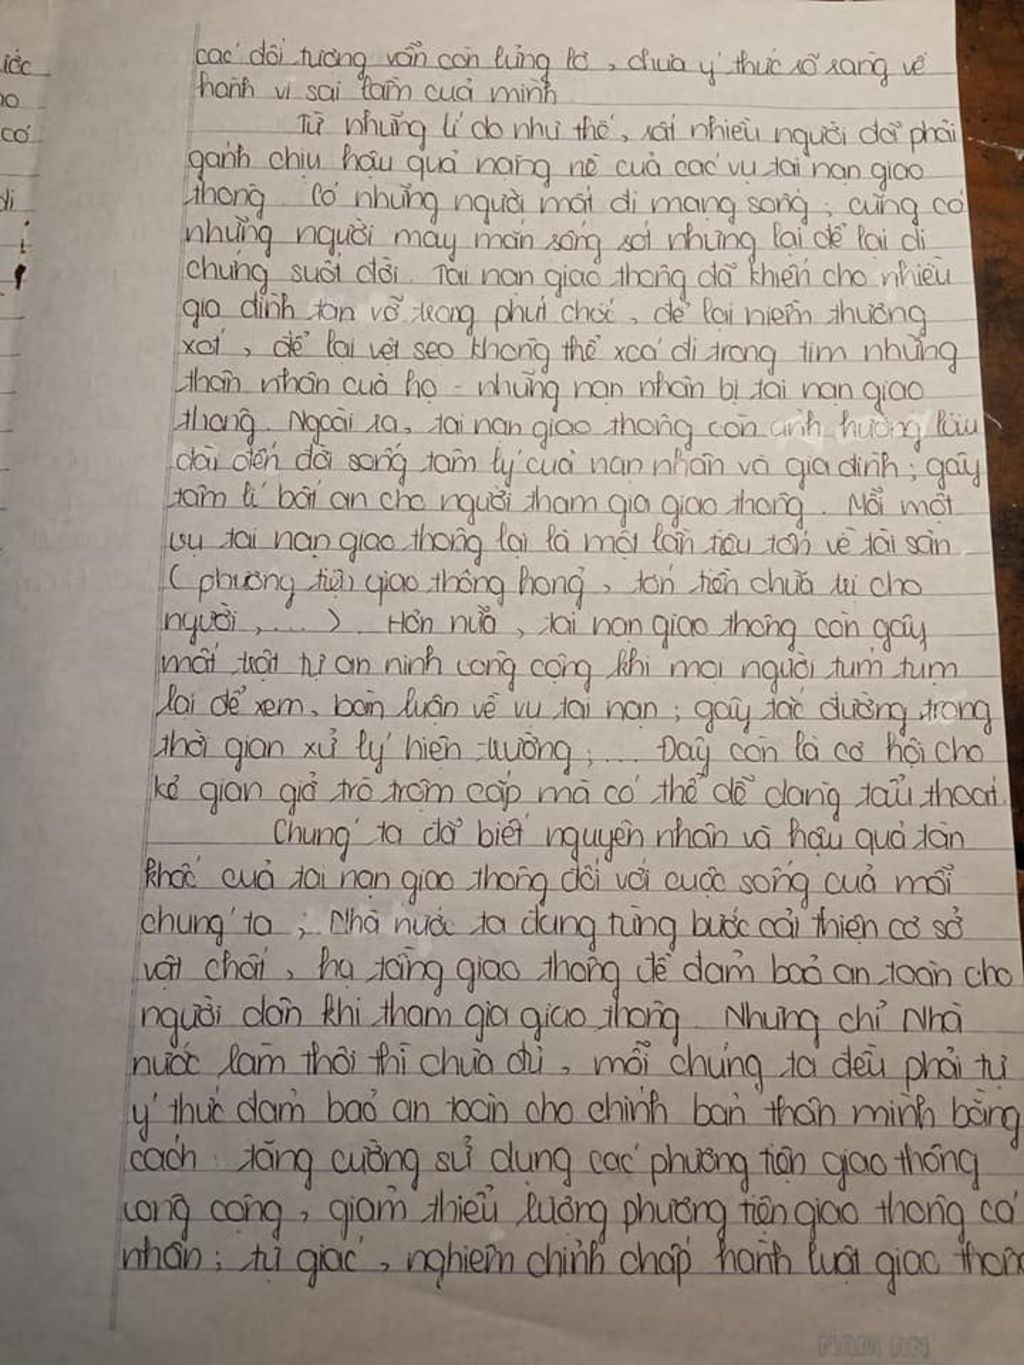 ước
các đối tượng vẫn còn lửng lơ, chưa ý thức rõ ràng về
hành vi sai lầm của mình
có
Từ những lí do như thế, rất nhiều người đã phải
gánh chịu hậu quả nặng nề của các vụ tai nạn giao
di
thông. Có những người mất đi mạng sống; cũng có
những người may mắn sống sót nhưng lại để lại di
chứng suốt đời. Tai nạn giao thông đã khiến cho nhiều
gia đình tan vỡ trong phút chốc, để lại niềm thương
xót, để lại vết sẹo không thể xoá đi trong tim những
thân nhân của họ - những nạn nhân bị tai nạn giao
thông. Ngoài ra, tai nạn giao thông còn ảnh hưởng lâu
dài đến đời sống tâm lý của nạn nhân và gia đình; gây
tâm lí bất an cho người tham gia giao thông. Mỗi một
vụ tai nạn giao thông lại là một lần tiêu tốn về tài sản
(phương tiện giao thông hỏng, tốn tiền chữa trị cho
người, ...). Hơn nữa, tai nạn giao thông còn gây
mất trật tự an ninh công cộng khi mọi người tụm tụm
lại để xem, bàn luận về vụ tai nạn; gây tắc đường trong
thời gian xử lý hiện trường; ... Đây còn là cơ hội cho
kẻ gian giở trò trộm cắp mà có thể dễ dàng tẩu thoát.
Chúng ta đã biết nguyên nhân và hậu quả tàn
khốc của tai nạn giao thông đối với cuộc sống của mỗi
chúng ta; Nhà nước ta đang từng bước cải thiện cơ sở
vật chất, hạ tầng giao thông để đảm bảo an toàn cho
người dân khi tham gia giao thông. Nhưng chỉ Nhà
nước làm thôi thì chưa đủ, mỗi chúng ta đều phải tự
ý thức đảm bảo an toàn cho chính bản thân mình bằng
cách: tăng cường sử dụng các phương tiện giao thông
công cộng, giảm thiểu lượng phương tiện giao thông cá
nhân; tự giác, nghiêm chỉnh chấp hành luật giao thông